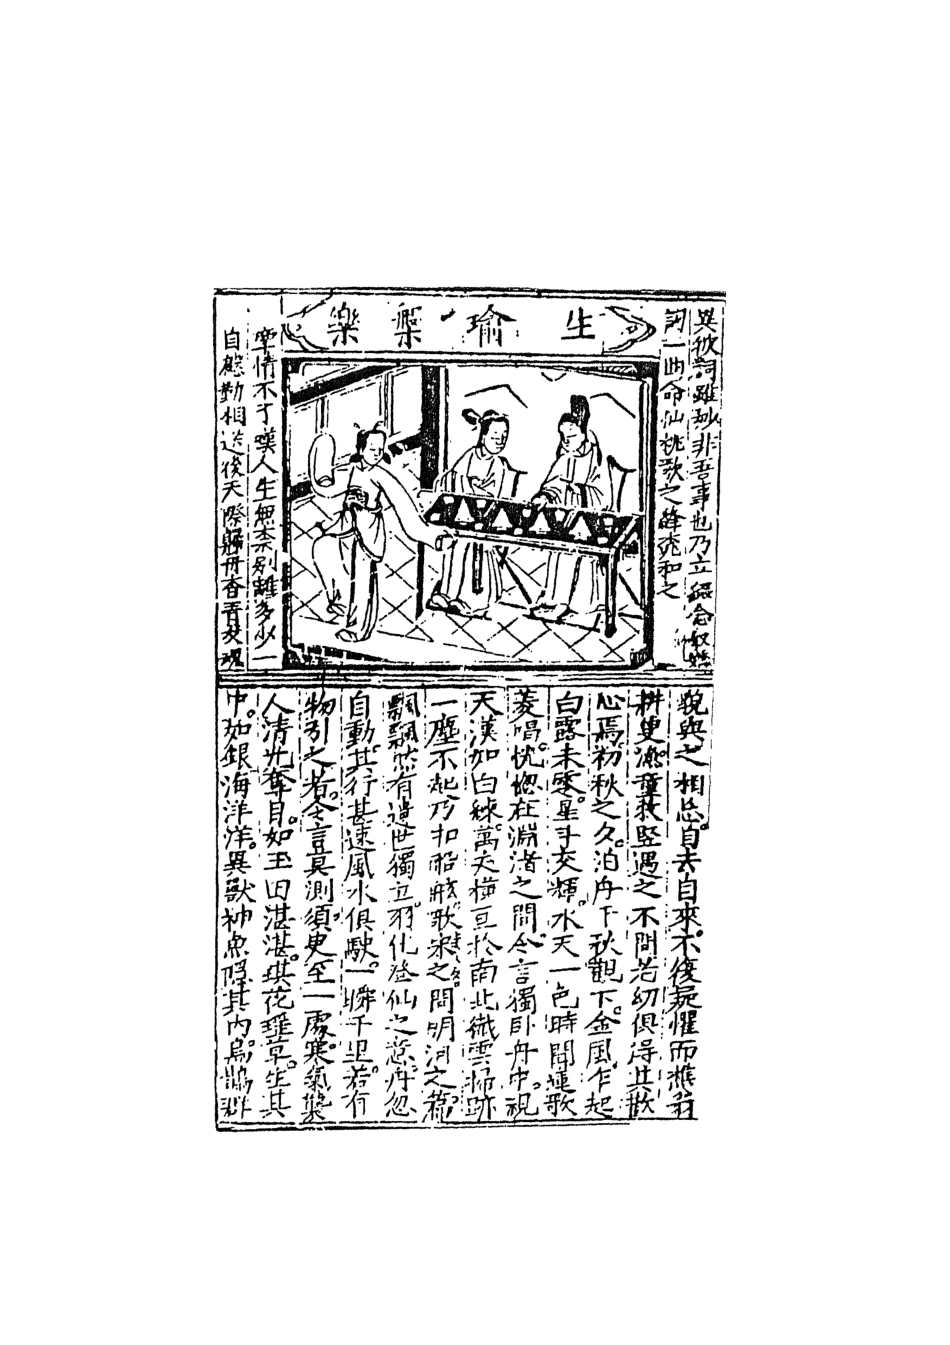 異彼詞雖妙非吾事也乃立綴念奴嬌
詞一曲命仙桃歌之鋒亮和之
生瑜槃樂
牽情不了嘆人生無柰別離多少一
自慇勤相送後天際歸舟杳青魂
貌與之相忘。自去自來。不復疑懼而樵翁
耕叟漁童牧竪遇之不問老幼俱得其歡
心焉。初秋之夕。泊舟千秋觀下。金風乍起
白露未零。星斗交輝。水天一色時聞蓮歌
菱唱。恍惚在洲渚之間。令言獨卧舟中。視
天漢如白練。萬丈橫亘於南北纖雲掃跡
一塵不起乃扣船舷。歌宋之問明河之篇。
飄飄然有遺世獨立。羽化登仙之意。舟忽
自動。其行甚速風水俱駛。一瞬千里。若有
物引之者。令言莫測須臾至一處。寒氣襲
人清光奪目。如玉田湛湛。琪花瑤草。生其
中。如銀海洋洋。異獸神魚隱其內。烏鵲群